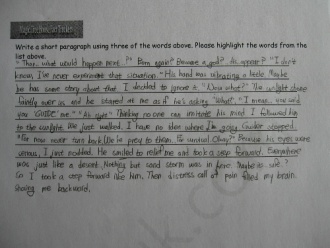 Write a short paragraph using three of the words above. Please highlight the words from the
list above.
"Then, what would happen next?" "Born again? Became a god? As appear?" "I don't
know, I've never experient that situation." His hand was vibrating a little. Maybe
he has some story about that. I decided to ignore it. "Now what?" The sunlight shone
faintly over us and he stared at me as if he's asking "What". "I mean, are you
my guide" "All right" Thinking no one can imitate his mind I followed him
to the sunlight. We just walked. I have no idea where I'm going. stopped.
"For now never turn back. Use pray to them. Understand? Okay?" Because his eyes were
serious, I just nodded. He smiled to me and took a step forward. Everywhere
was just like a desert. Nothing but sand storm was in here. Maybe to safe?
So I took a step forward like him. Then, distress call of pain filled my brain.
me backward.